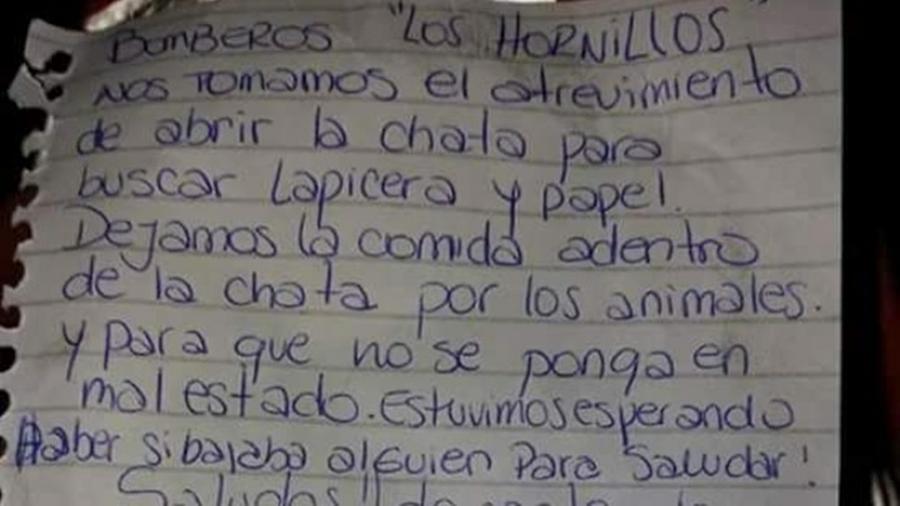 BOMBEROS "LOS HORNILLOS"
NOS TOMAMOS el atrevimiento
de abrir la chata para
buscar Lapicera y papel.
Dejamos la comida adentro
de la chata por los animales.
y para que no se ponga en
mal estado. Estuvimos esperando
Haber si bajaba alguien Para Saludar!
Saludos!!